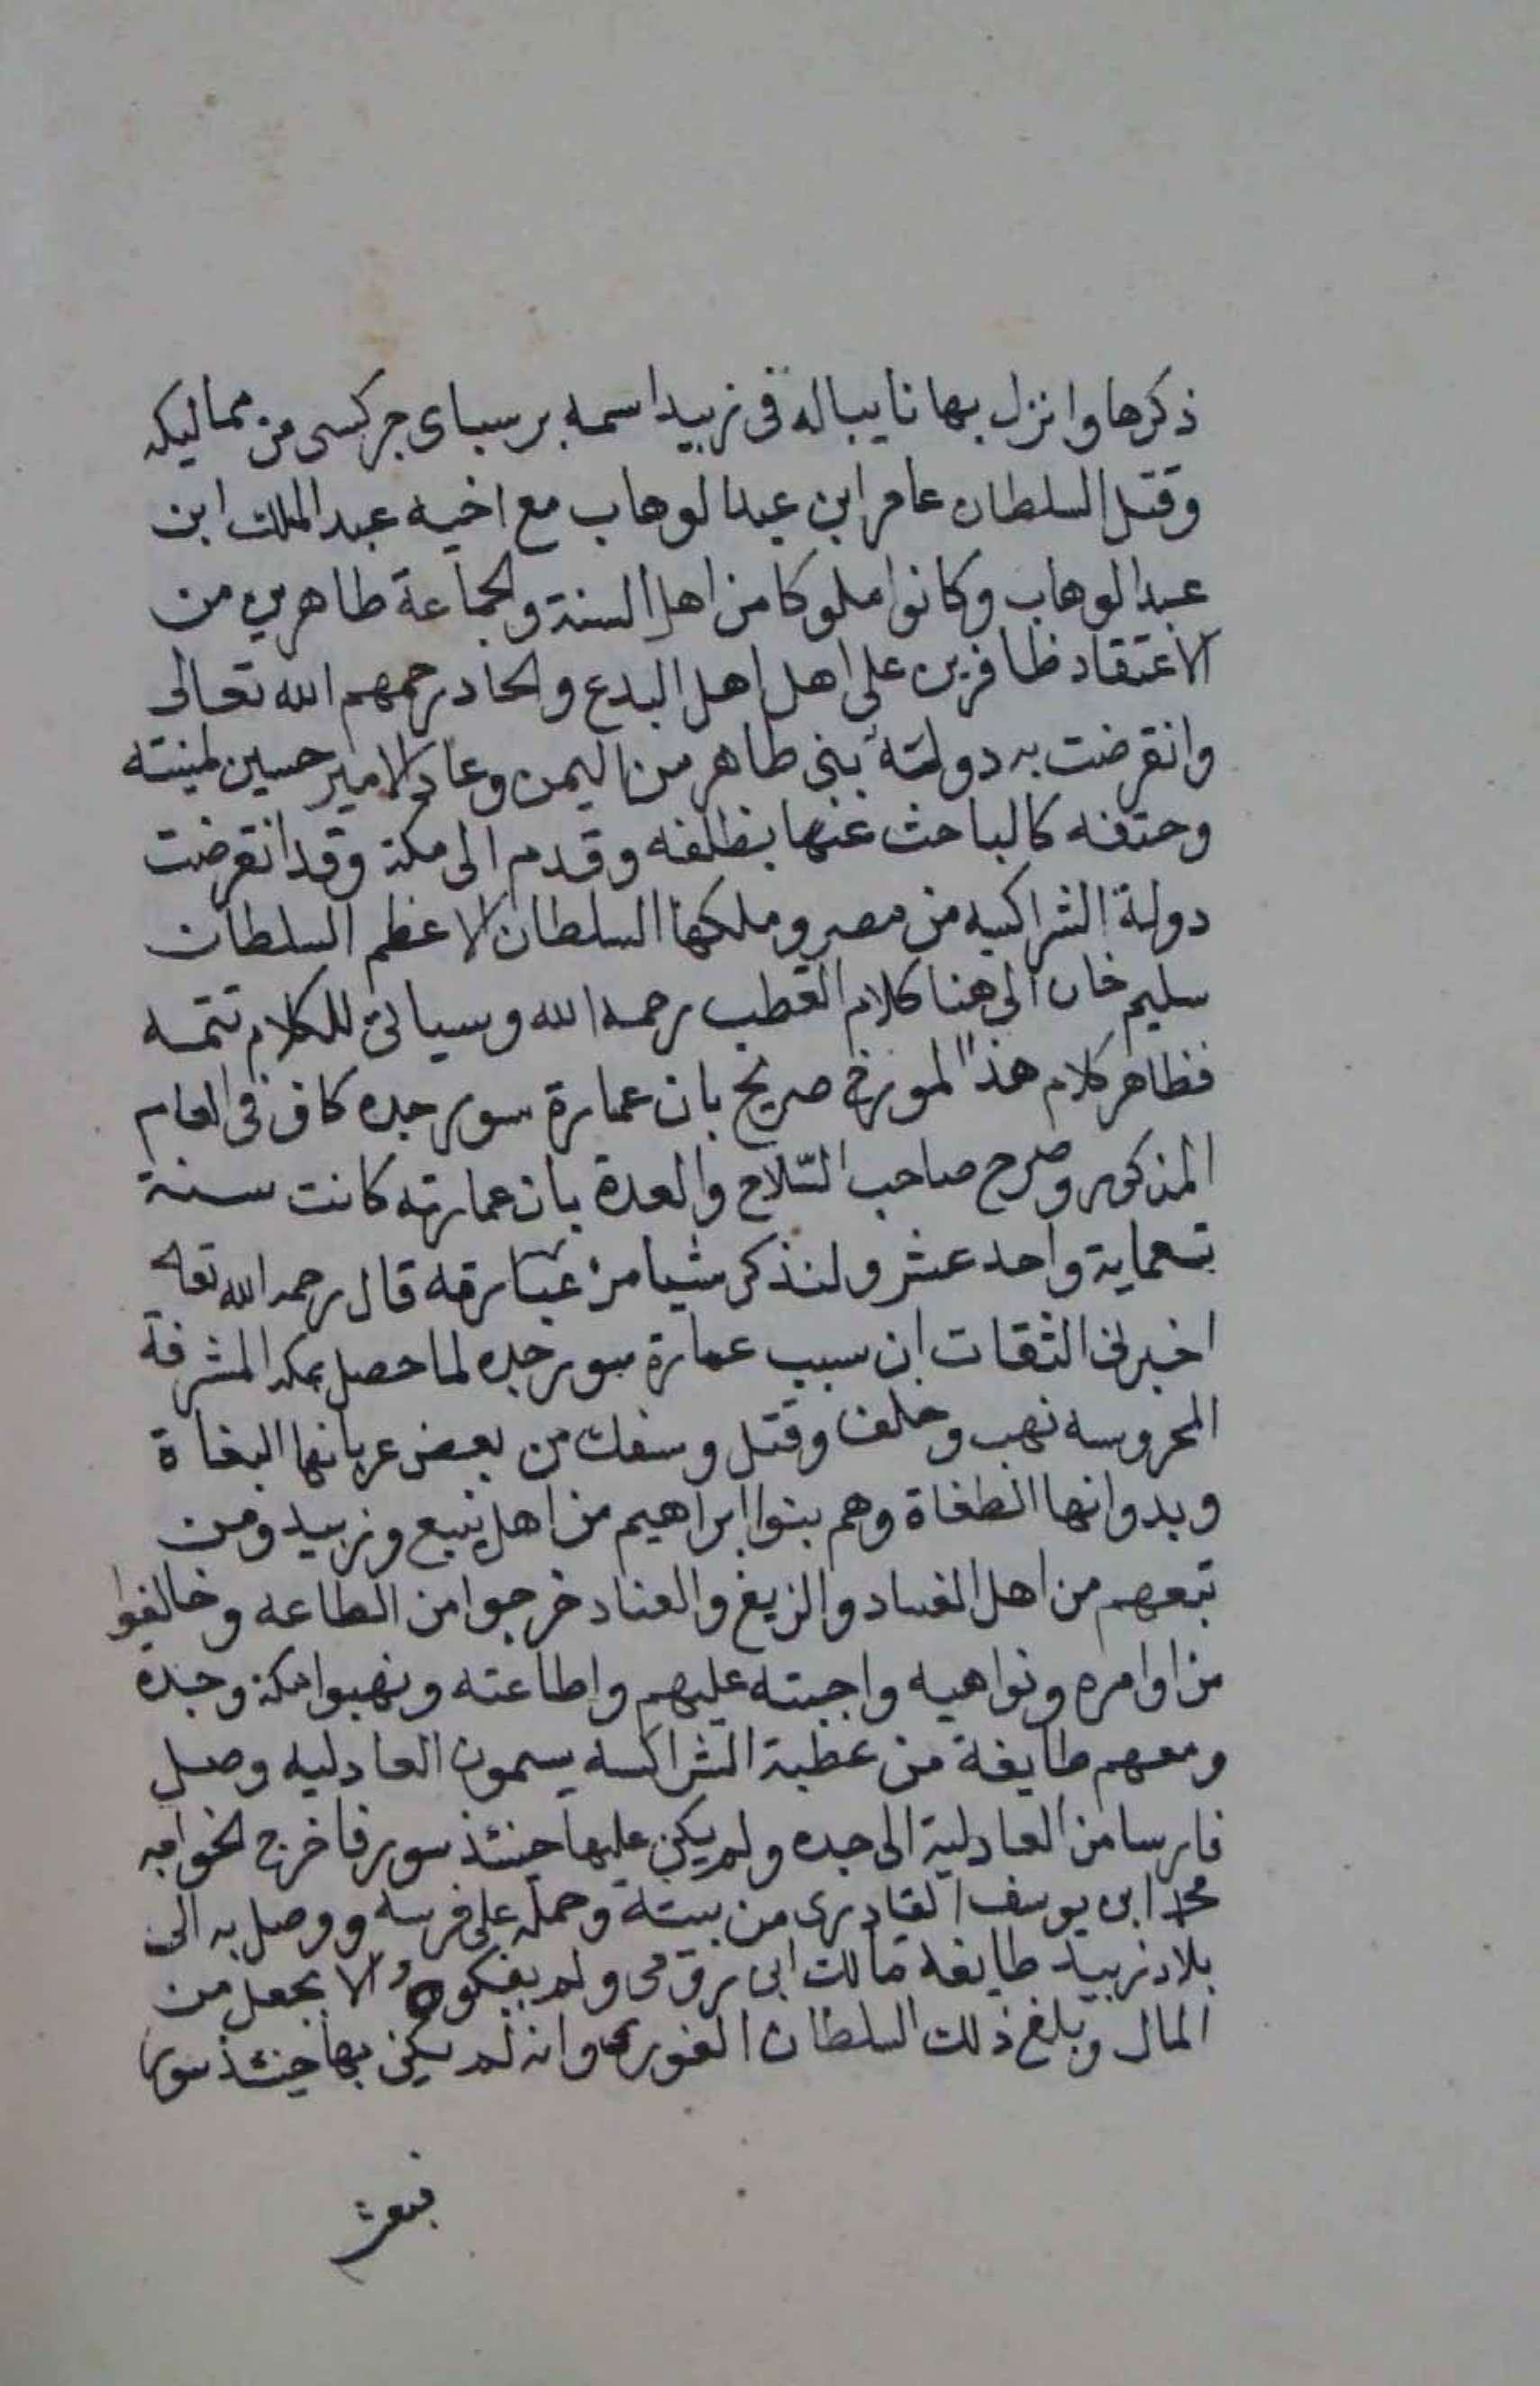 ذكرها وانزل بها نايباله فى زبيد اسمه برسباى جركسى من مماليكه
وقتل السلطان عامر ابن عبد الوهاب مع اخيه عبد الملك ابن
عبد الوهاب وكانوا ملوكا من اهل السنة والجماعة طاهرين من
الاعتقاد ظافرين على اهل اهل البدع والحاد رحمهم الله تعالى
وانقرضت به دولته بنى طاهر من اليمن وعاد الامير حسين لمنيته
وحتفه كالباحث عنها بظلفه وقدم الى مكة وقد انقرضت
دولة الشراكسه من مصر وملكها السلطان الاعظم السلطان
سليم خان الى هنا كلام القطب رحمه الله وسياتى للكلام تتمه
فظاهر كلام هذا المورخ صريح بان عمارة سور جده كان فى العام
المذكور وصرح صاحب السلاح والعدة بان عمارته كانت سنة
تسعماية واحد عشر ولنذكر شيا من عبارته قال رحمه الله تعالى
اخبرنى الثقات ان سبب عمارة سور جده لما حصل بمكه المشرفة
المحروسه نهب وخلف وقتل وسفك من بعض عربانها البغاة
وبدوانها الطغاة وهم بنوا ابراهيم من اهل ينبع وزبيد ومن
تبعهم من اهل الفساد والزيغ والعناد خرجوا من الطاعه وخالفوا
من اوامره ونواهيه واجبته عليهم واطاعته ونهبوا مكة وجدة
ومعهم طايفة من عظبة الشراكسه يسمون العادليه وصل
فارسا من العادلية الى جده ولم يكن عليها حينئذ سور فاخرج الخواجه
محمد ابن يوسف القادرى من بيته وحمله على فرسه ووصل به الى
بلاد زبيد طايفة مالك ابى رومى ولم يفكوه الا بجعل من
المال وبلغ ذلك السلطان الغورى وانه لم يكن بها حينئذ سور
فبعث